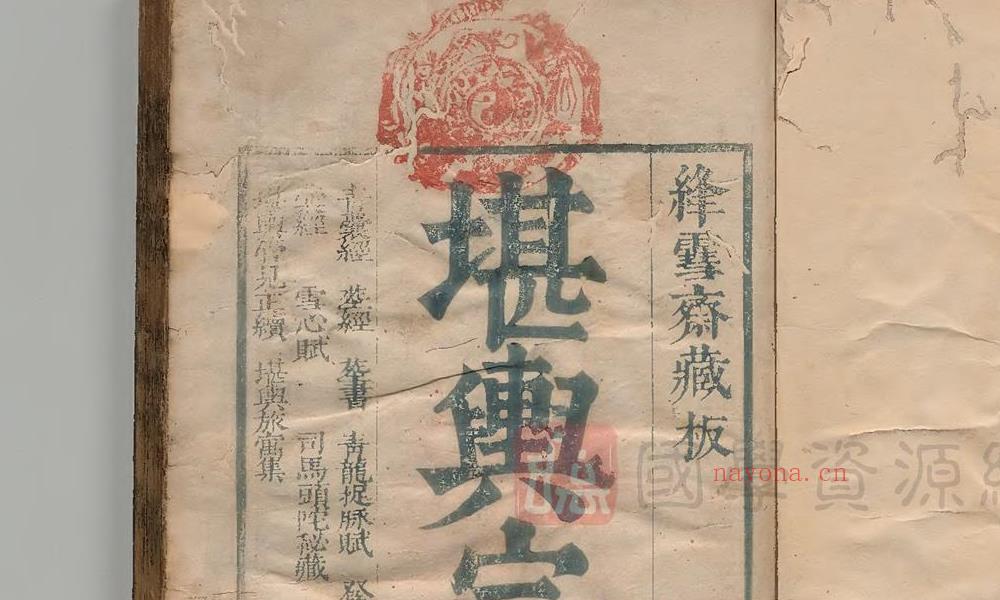 絳雪齋藏板
堪輿
青囊經 葬經 葬書 青龍捉脉賦
經 雪心賦 司馬頭陀秘藏
堪輿管見正續 堪輿旅寓集
國學資源
nayona.cn